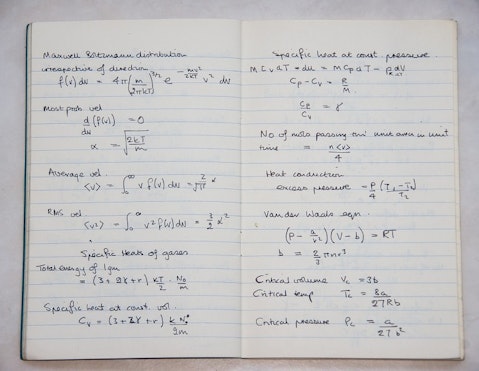 Maxwell Boltzmann distribution
irrespective of direction
f(v)dv = 4π(m/2πkT)^3/2 e^-mv²/2kT v² dv
Most prob. vel
d/dv (f(v)) = 0
α = √(2kT/m)
Average vel.
<v> = ∫₀^∞ v f(v) dv = 2/√π α
RMS vel
<v²> = ∫₀^∞ v² f(v) dv = 3/2 α²
Specific Heats of gases
Total energy of 1gm
= (3+2γ+r) kT/2 · N₀/m
Specific heat at const. vol.
Cv = (3+2γ+r) k N₀/2m
Specific heat at const. pressure.
m Cv dT = du = m Cp dT - p dV
Cp - Cv = R/M
Cp/Cv = γ
No of mols passing thro' unit area in unit
time = n<v>/4
Heat conduction
excess pressure = P/4 (T₁ - T₂)/T₂
Van der Waals eqn.
(P - a/v²)(V - b) = RT
b = 2/3 πnr³
Critical volume Vc = 3b
Critical temp Tc = 8a/27Rb
Critical pressure Pc = a/27b²